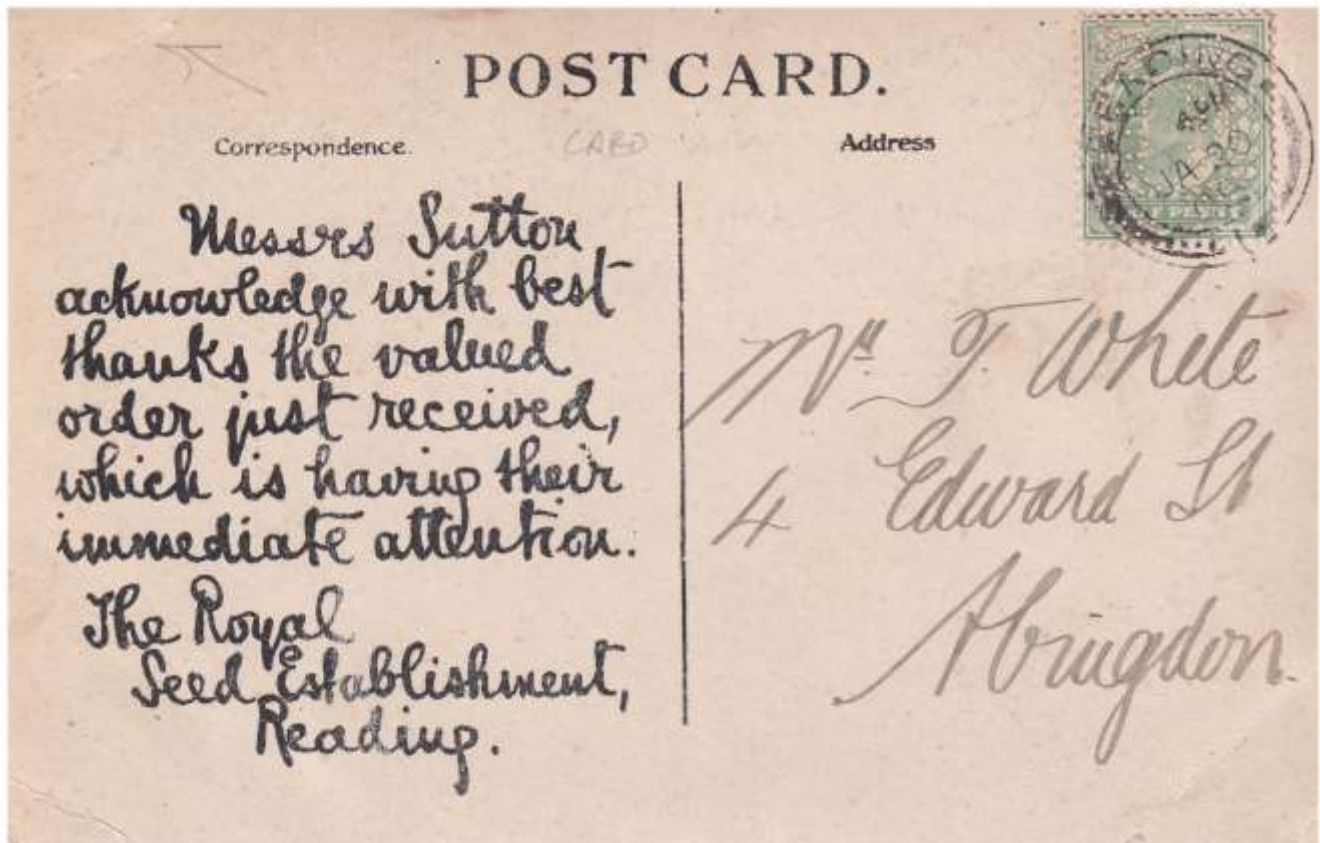 POST CARD.
Correspondence.
CARD
Address
READING
JA 20
Messrs Sutton
acknowledge with best
thanks the valued
order just received,
which is having their
immediate attention.
The Royal
Seed Establishment,
Reading.
Mr. T. White
4 Edward St
Abingdon.